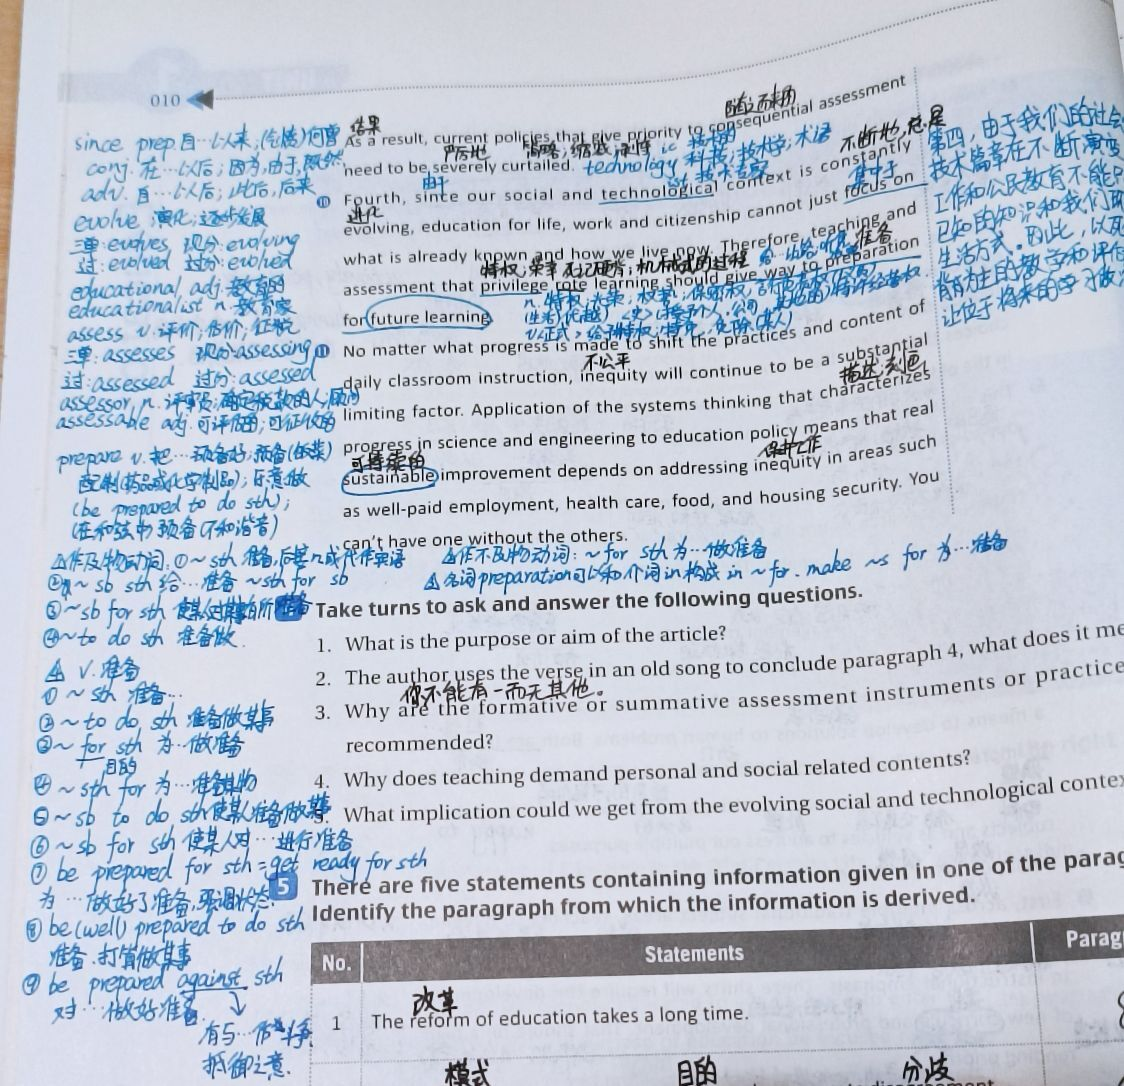 010
since prep.自…以来;
conj. 在…以后;因为,由于,既然
adv. 自…以后;此后,后来
evolve 演化;逐步发展
三单:evolves 现分:evolving
过:evolved 过分:evolved
educational adj.教育的
educationalist n.教育家
assess v.评价;估价;
三单:assesses 现分:assessing
过:assessed 过分:assessed
assessor n.
assessable adj.可评估的;可征收的
prepare v.把…预备好;预备(饭菜)
配制(药品或化学制品);乐意做
(be prepared to do sth);
(在和弦中)预备(不和谐音)
结果
随之而来的
As a result, current policies that give priority to consequential assessment
严厉地
need to be severely curtailed.
technology 科技;技术学;术语
技术专家
由于
不断地,总是
Fourth, since our social and technological context is constantly
进化
集中于
evolving, education for life, work and citizenship cannot just focus on
what is already known and how we live now. Therefore, teaching and
特权;荣幸 死记硬背;机械式的过程
准备
assessment that privilege rote learning should give way to preparation
for future learning.
n.特权;
No matter what progress is made to shift the practices and content of
不公平
daily classroom instruction, inequity will continue to be a substantial
描述;刻画
limiting factor. Application of the systems thinking that characterizes
progress in science and engineering to education policy means that real
可持续的
sustainable improvement depends on addressing inequity in areas such
as well-paid employment, health care, food, and housing security. You
can't have one without the others.
第四,由于我们的社会
技术篇章在不断演变
工作和公民教育不能
已知的知识和我们
生活方式。因此,以死
背为主的教学和评估
让位于将来的学习做
△作及物动词:①~sth 准备,后接n.或代作宾语
△作不及物动词:~for sth 为…做准备
②~sb sth 给…准备 ~sth for sb
△名词preparation可以和介词in构成 in ~ for. make ~s for 为…准备
③~sb for sth
④~to do sth 准备做.
Take turns to ask and answer the following questions.
1. What is the purpose or aim of the article?
2. The author uses the verse in an old song to conclude paragraph 4, what does it me
你不能有一而无其他。
3. Why are the formative or summative assessment instruments or practice
recommended?
4. Why does teaching demand personal and social related contents?
What implication could we get from the evolving social and technological contex
△ v.准备
①~sth 准备…
②~to do sth 准备做某事
③~for sth 为…做准备
目的
④~sth for 为…准备某物
⑤~sb to do sth使某人准备做某事
⑥~sb for sth 使某人对…进行准备
⑦be prepared for sth = get ready for sth
为…做好了准备,强调状态.
⑧be (well) prepared to do sth
准备.打算做某事
⑨be prepared against sth
对…做好准备
有与…作斗争
抵御之意.
5 There are five statements containing information given in one of the parag
Identify the paragraph from which the information is derived.
No. Statements Parag
改革
1 The reform of education takes a long time.
模式 目的 分歧